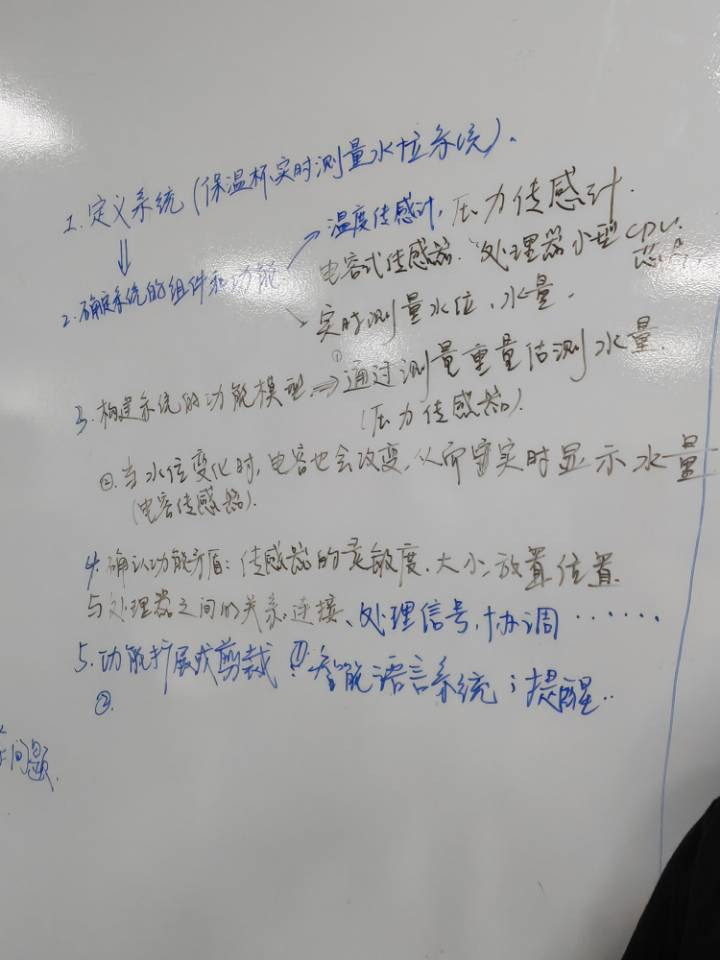 1. 定义系统(保温杯实时测量水位系统).
⇓
2. 确定系统的组件和功能
→温度传感计, 压力传感计.
电容式传感器. 处理器小型CPU.
芯片
↘实时测量水位、水量.
3. 构建系统的功能模型. ⇒ ①通过测量重量估测水量.
(压力传感器).
②. 当水位变化时, 电容也会改变, 从而实时显示水量
(电容传感器).
4. 确认功能矛盾: 传感器的灵敏度、大小、放置位置
与处理器之间的关系. 连接、处理信号, 协调······
5. 功能扩展或剪裁 ①: 智能语言系统; 提醒..
②.
问题.